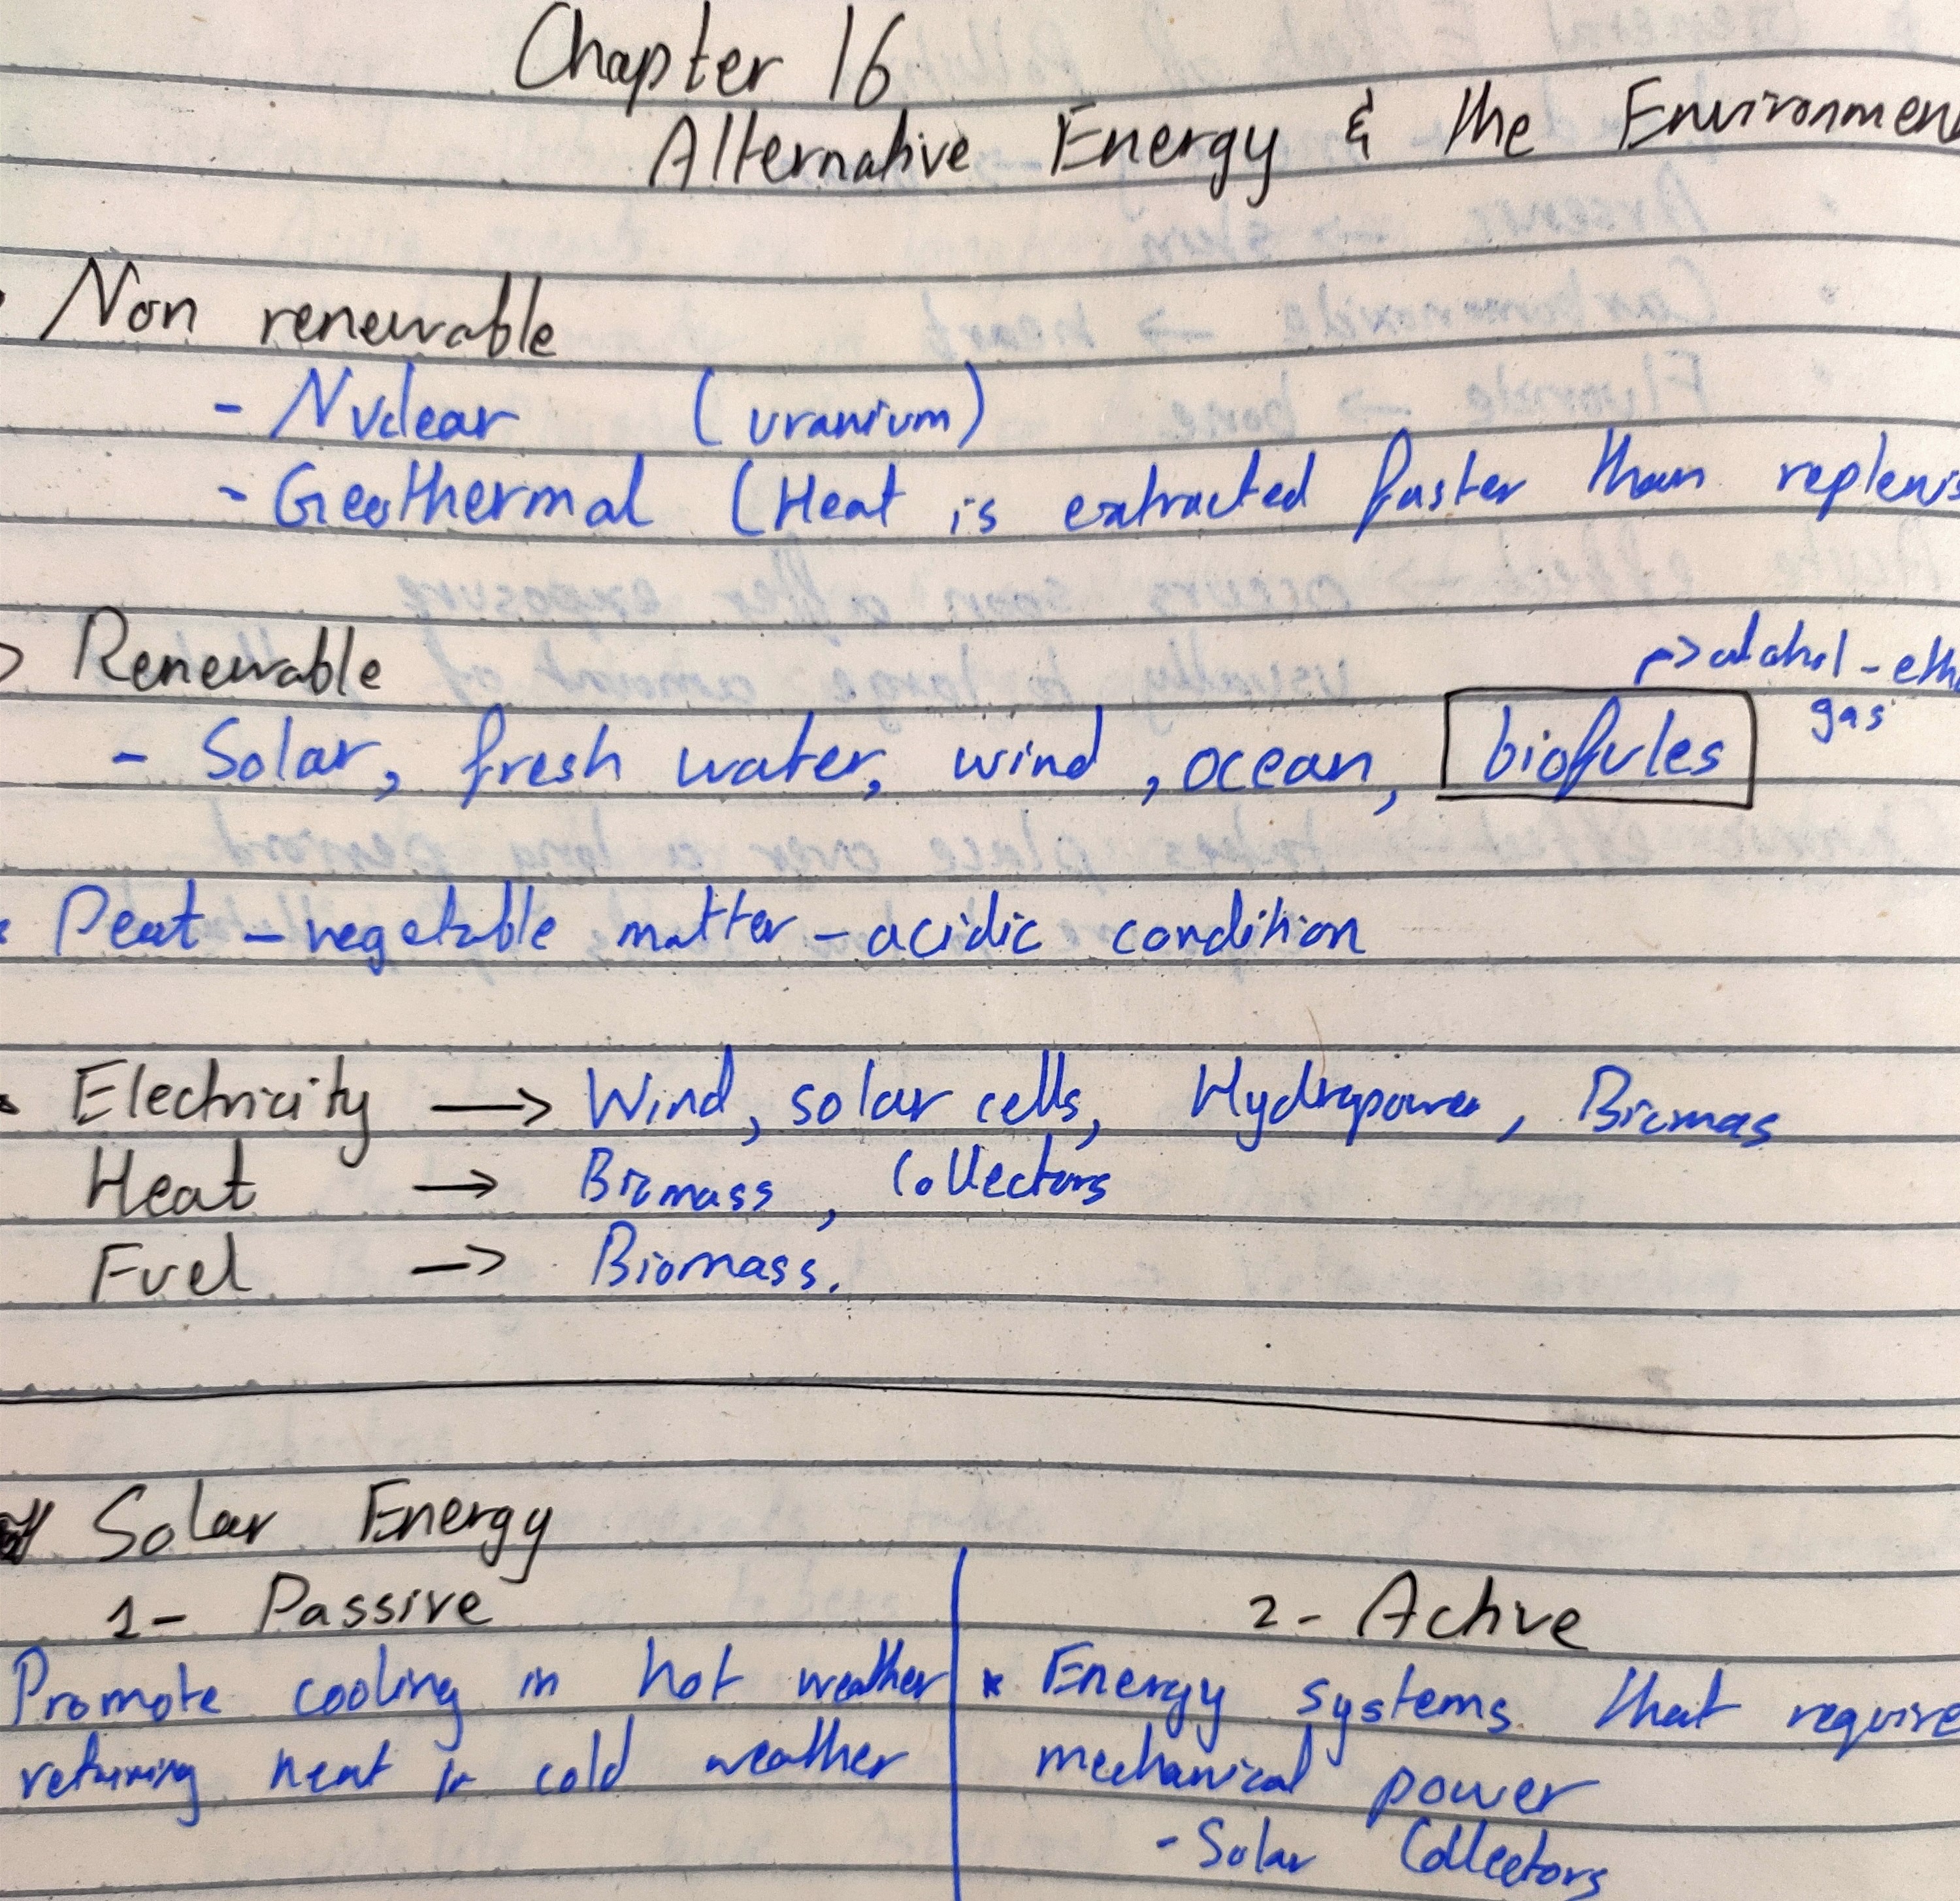 Chapter 16
Alternative Energy & the Environmen
Non renewable
- Nuclear (uranium)
- Geothermal (Heat is extracted faster than replenis
Renewable
->alcohol - eth
gas
- Solar, fresh water, wind, ocean, biofules
Peat - vegetable matter - acidic condition
Electricity -> Wind, solar cells, Hydropower, Biomas
Heat -> Biomass, Collectors
Fuel -> Biomass.
Solar Energy
1- Passive
2- Active
Promote cooling in hot weather
* Energy systems that require
returning heat in cold weather
mechanical power
- Solar Collectors